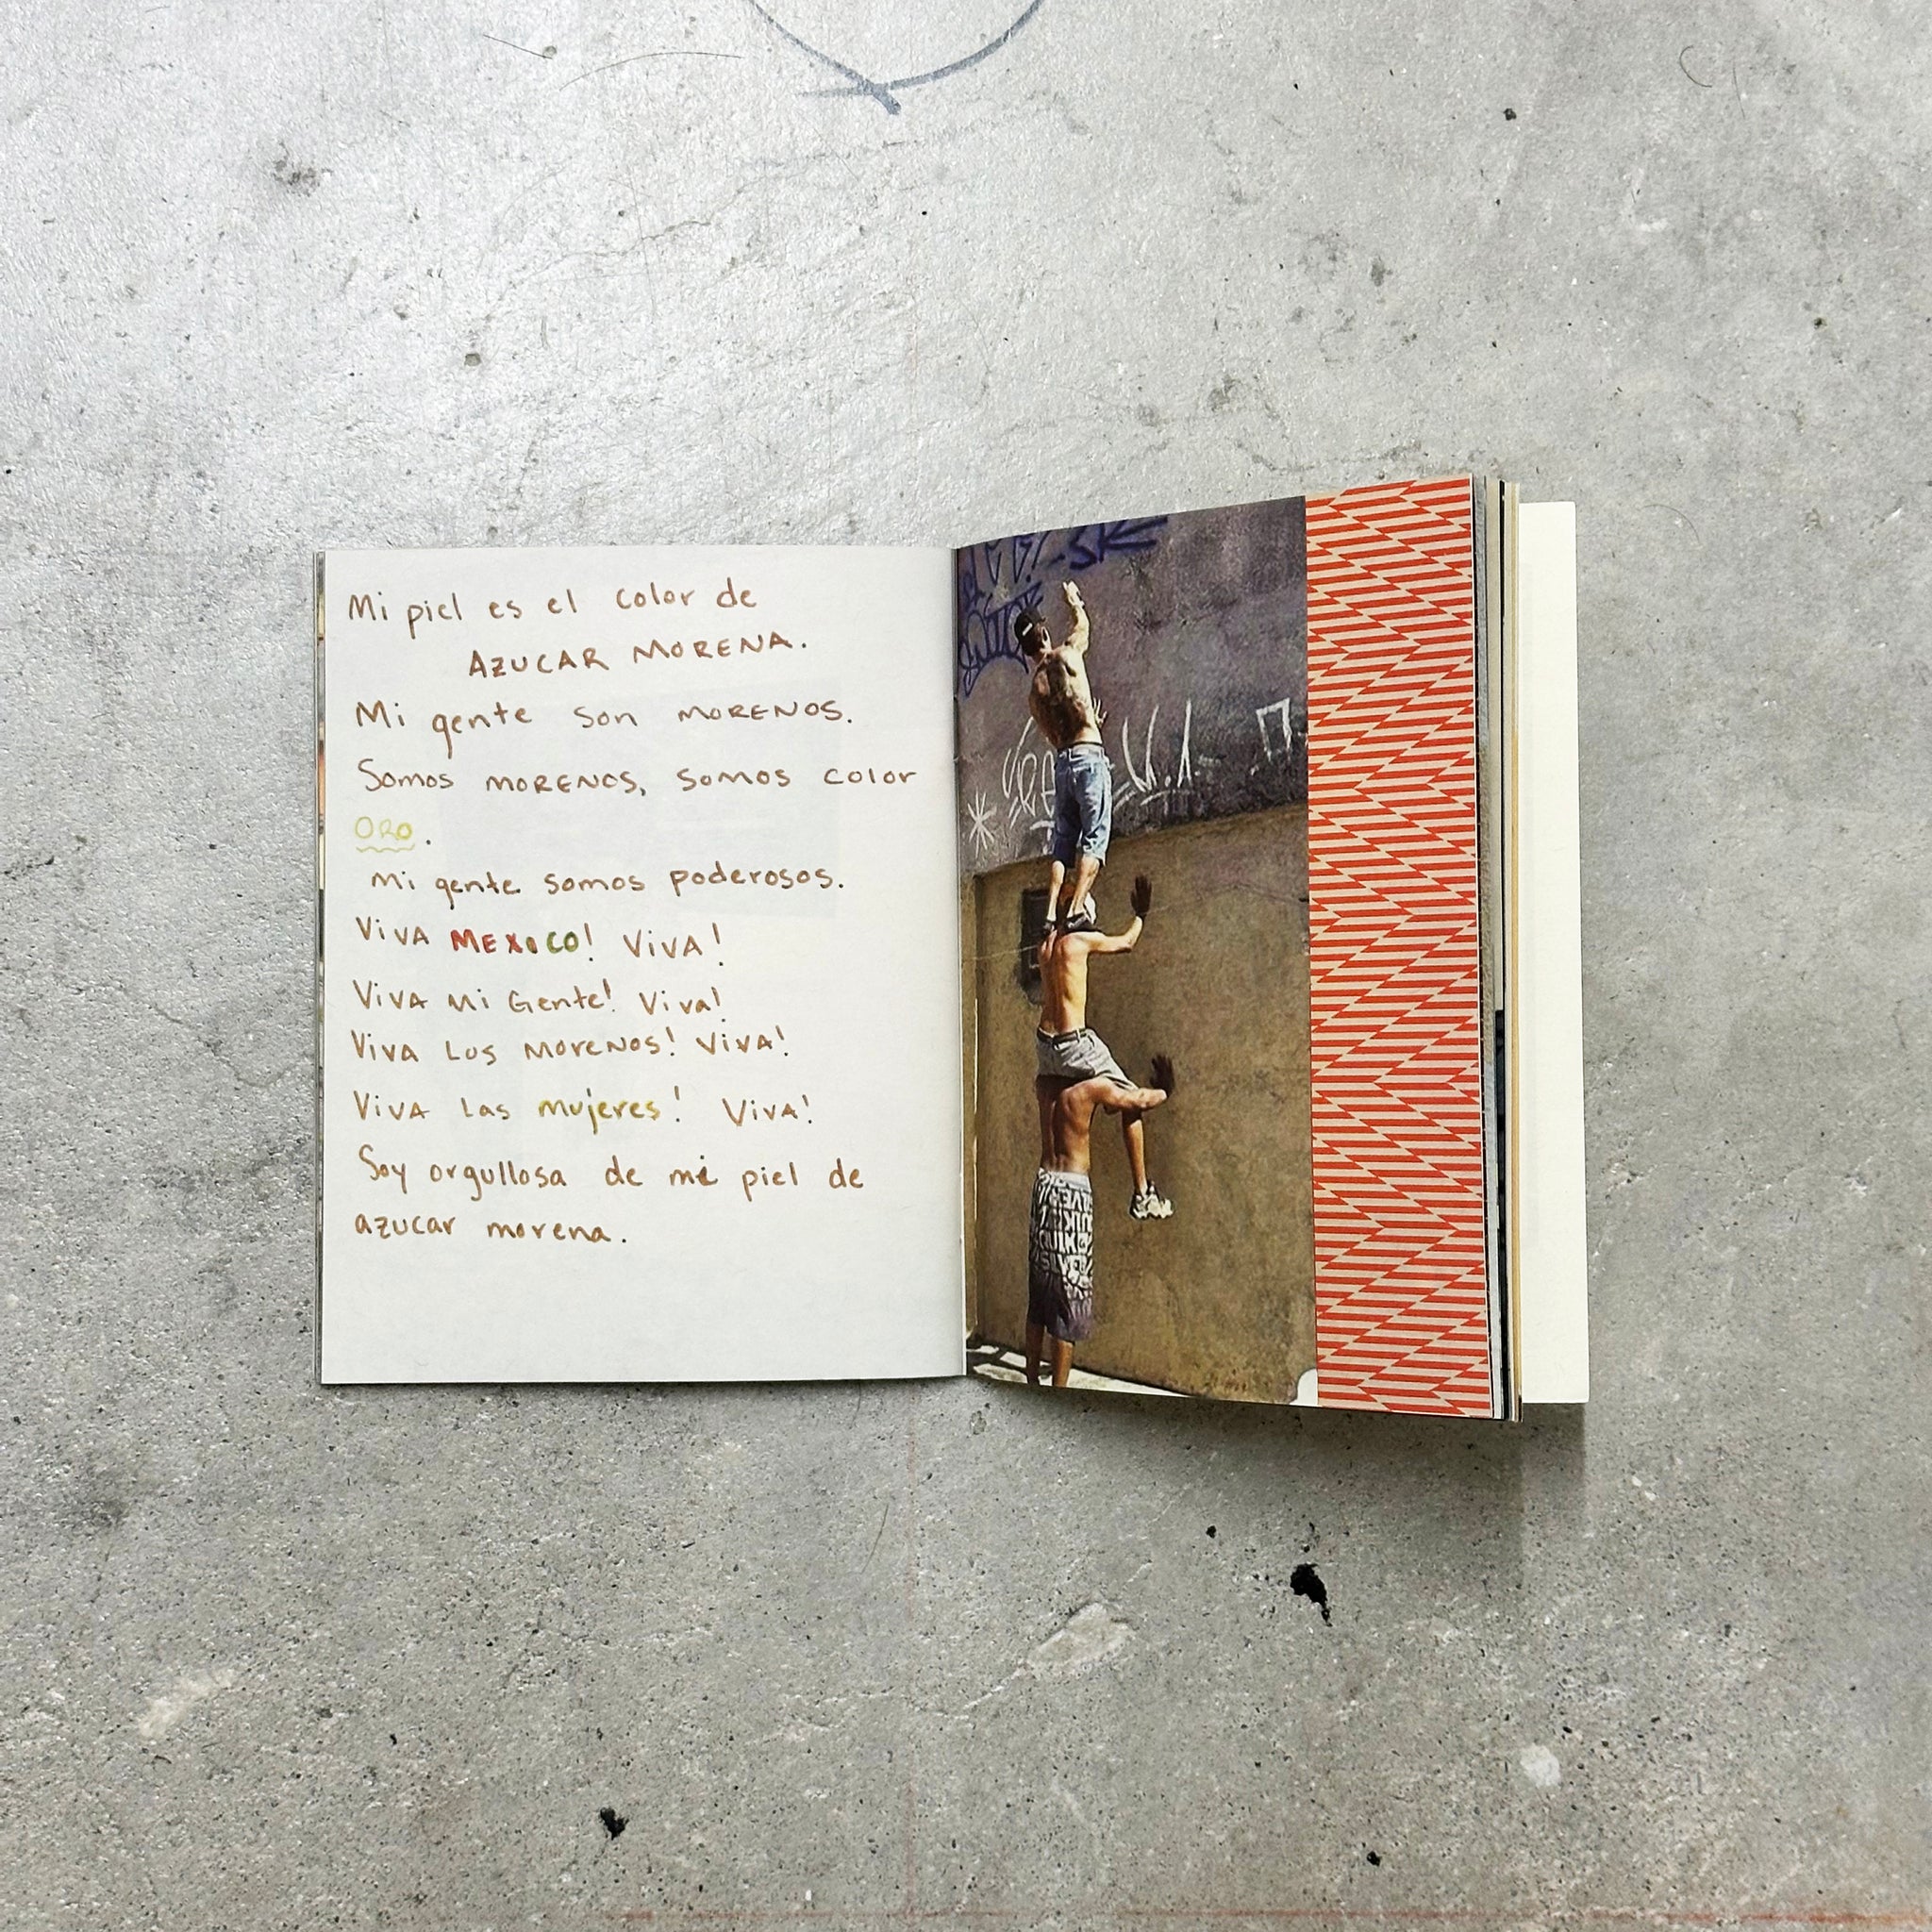 Mi piel es el color de
AZUCAR MORENA.
Mi gente son MORENOS.
Somos MORENOS, somos color
ORO.
Mi gente somos poderosos.
VIVA MEXICO! VIVA!
VIVA Mi Gente! Viva!
VIVA LOS MORENOS! VIVA!
VIVA Las mujeres! VIVA!
Soy orgullosa de mi piel de
azucar morena.
QUIK